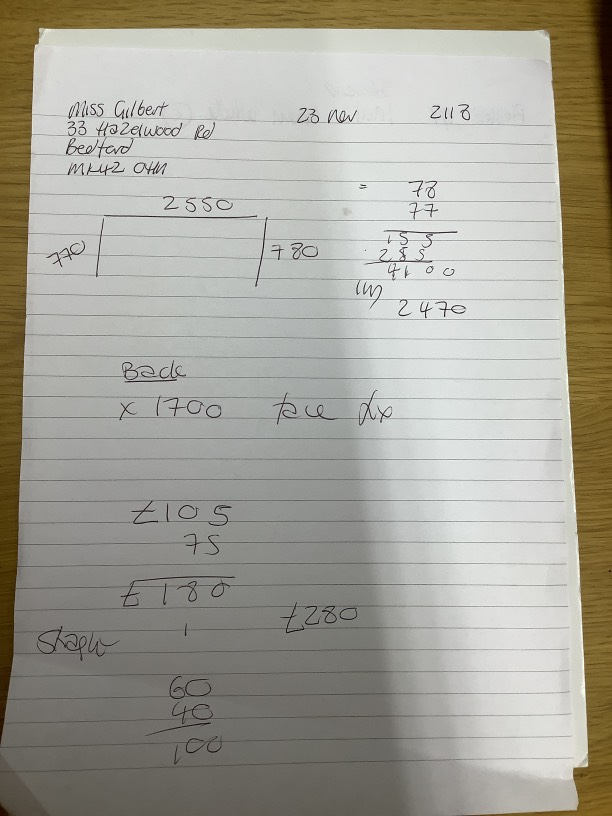 Miss Gilbert 23 nov 2113
33 Hazelwood Rd
Bedford
MK42
= 78
77
2550
770 780
155
255
4100
2470
Back
x 1700 face
£105
75
£180
1 £280
60
40
100